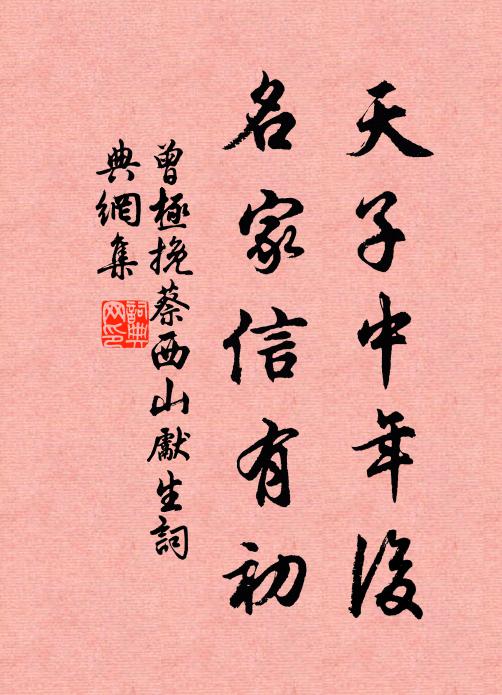 天子中年後
名家信有初
曾極挽蔡西山獻生詞
典網集
詞典網印